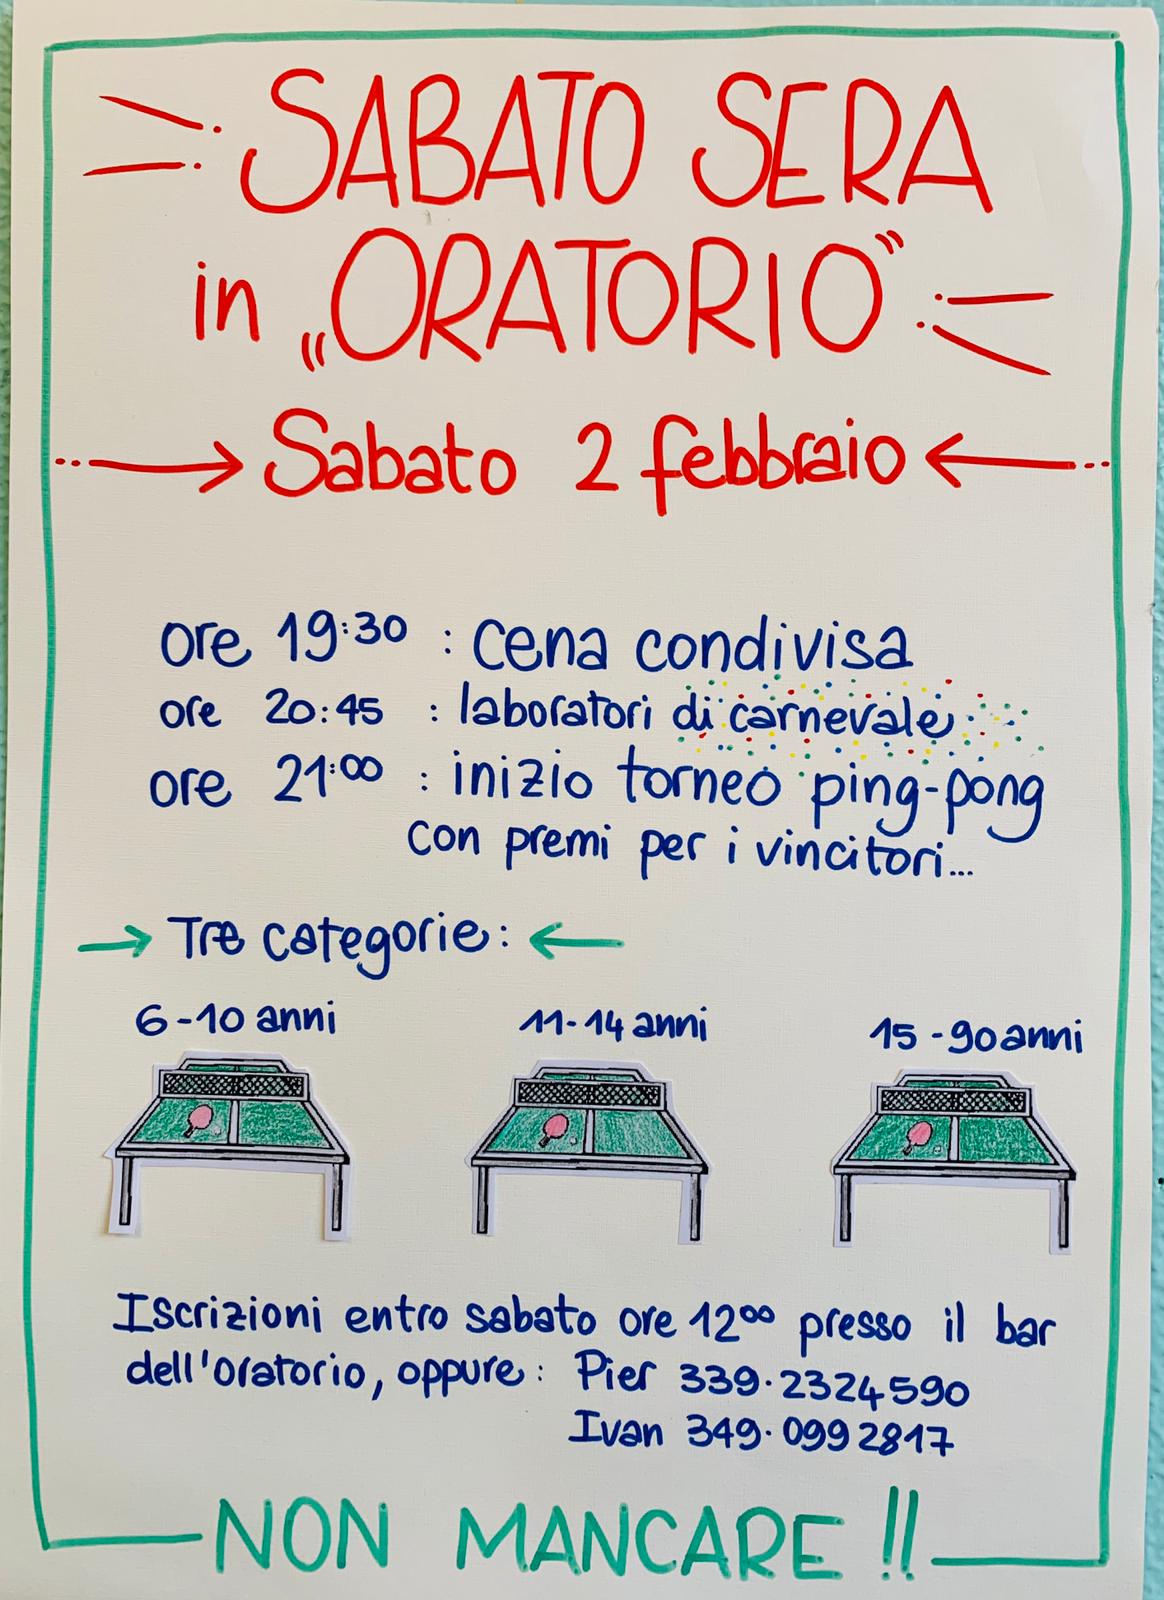 SABATO SERA
in „ORATORIO”
Sabato 2 febbraio
ore 19:30 : cena condivisa
ore 20:45 : laboratori di carnevale
ore 21:00 : inizio torneo ping-pong
con premi per i vincitori...
Tre categorie:
6-10 anni 11-14 anni 15-90 anni
Iscrizioni entro sabato ore 12°° presso il bar
dell'oratorio, oppure: Pier 339.2324590
Ivan 349.0992817
NON MANCARE!!